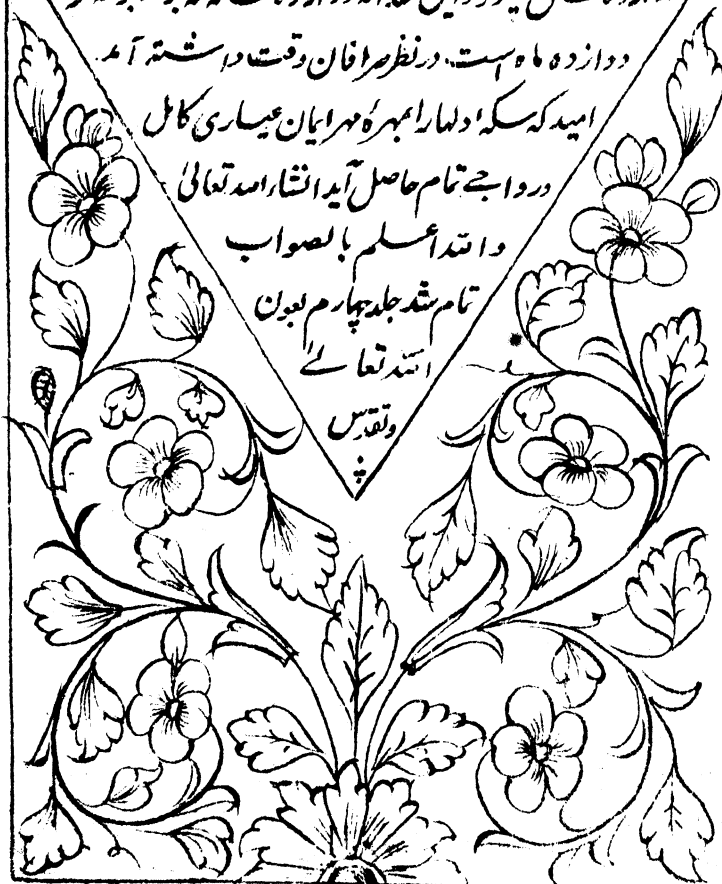 دوازده ماه است در نظر صرافان وقت داشته آمد
امید که سکه دلها را بمهره مهر ایمان عیاری کامل
و رواجے تمام حاصل آید انشاء الله تعالیٰ
و الله اعلم بالصواب
تمام شد جلد چهارم بعون
الله تعالےٰ
و تقدس